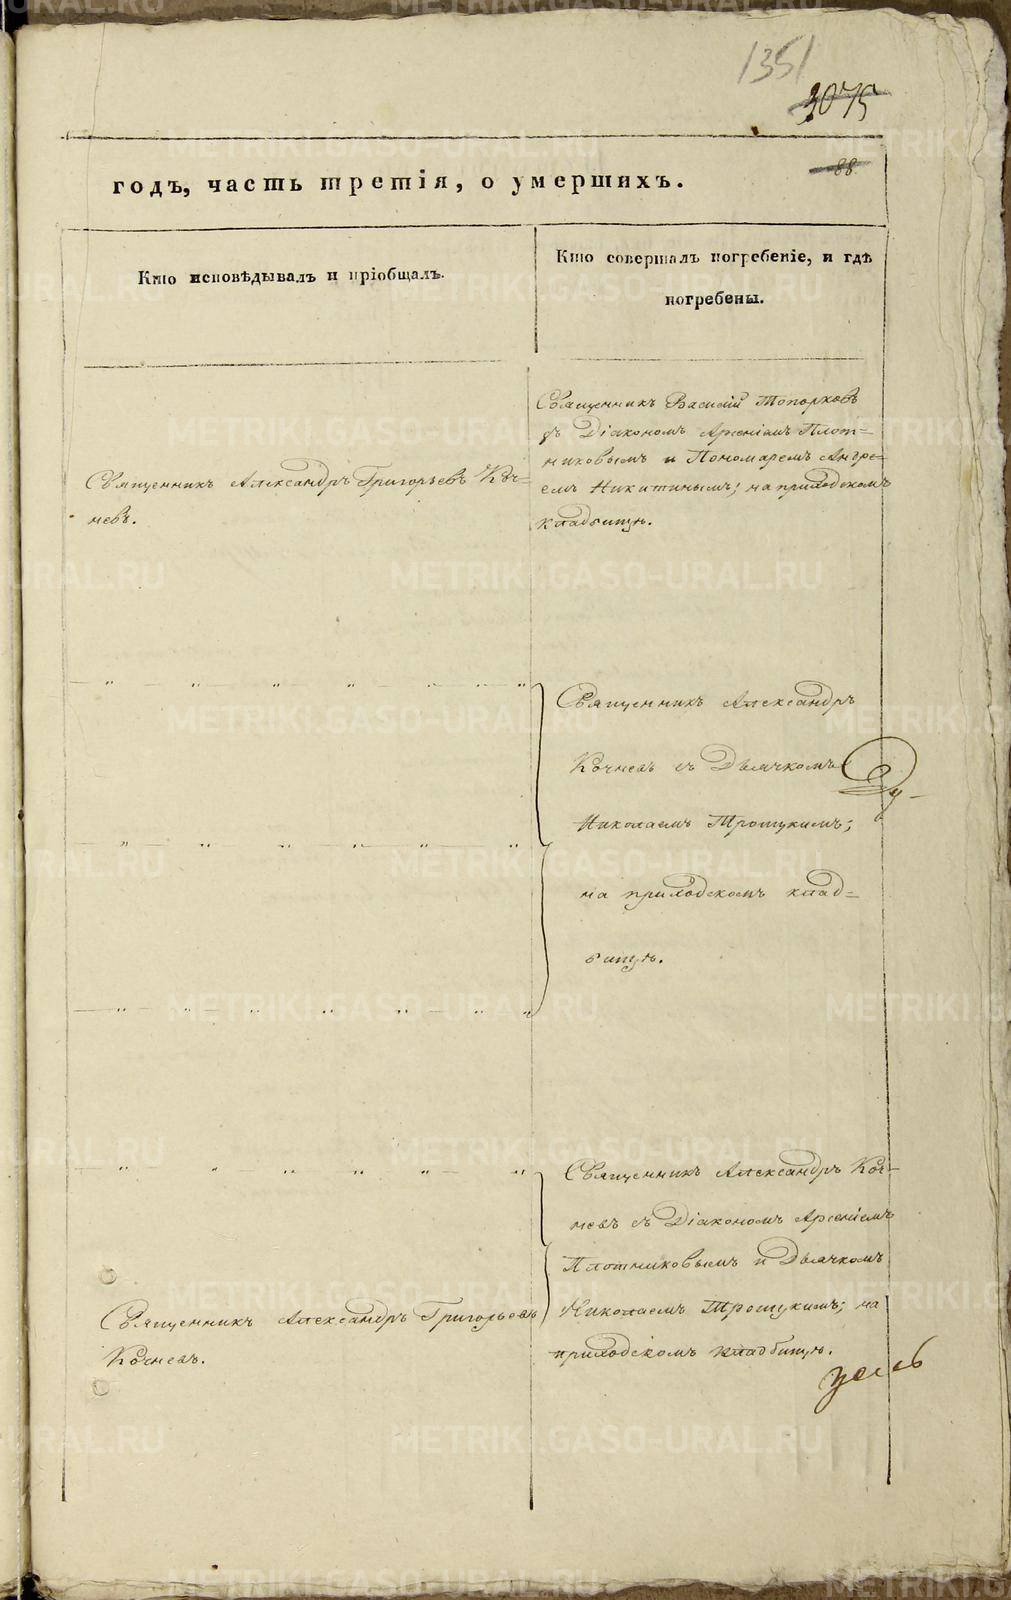 1351
3075
88
годъ, часть третія, о умершихъ.
Кто исповѣдывалъ и пріобщалъ.
Кто совершалъ погребеніе, и гдѣ
погребены.
Священникъ Василій Топорковъ
съ Діакономъ Арсеніемъ Плот=
никовымъ и Пономаремъ Андре=
емъ Никитинымъ; на приходскомъ
кладбищѣ.
Священникъ Александръ Григорьевъ Коч=
невъ.
Священникъ Александръ
Кочневъ съ Дьячкомъ
Николаемъ Троицкимъ;
на приходскомъ клад=
бищѣ.
Ду-
Священникъ Александръ Коч-
невъ съ Діакономъ Арсеніемъ
Плотниковымъ и Дьячкомъ
Николаемъ Троицкимъ; на
приходскомъ кладбищѣ.
Священникъ Александръ Григорьевъ
Кочневъ.
METRIKI.GASO-URAL.RU